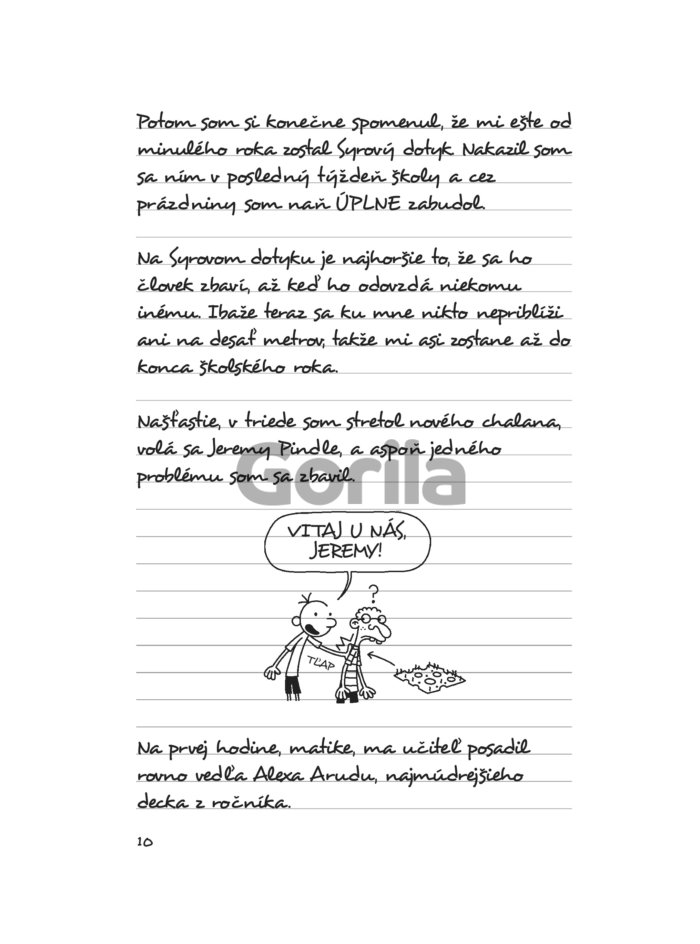 Potom som si konečne spomenul, že mi ešte od
minulého roka zostal Syrový dotyk. Nakazil som
sa ním v posledný týždeň školy a cez
prázdniny som naň ÚPLNE zabudol.
Na Syrovom dotyku je najhoršie to, že sa ho
človek zbaví, až keď ho odovzdá niekomu
inému. Ibaže teraz sa ku mne nikto nepriblíži
ani na desať metrov, takže mi asi zostane až do
konca školského roka.
Našťastie, v triede som stretol nového chalana,
volá sa Jeremy Pindle, a aspoň jedného
problému som sa zbavil.
Gorila
VITAJ U NÁS,
JEREMY!
?
TĽAP
Na prvej hodine, matike, ma učiteľ posadil
rovno vedľa Alexa Arudu, najmúdrejšieho
decka z ročníka.
10